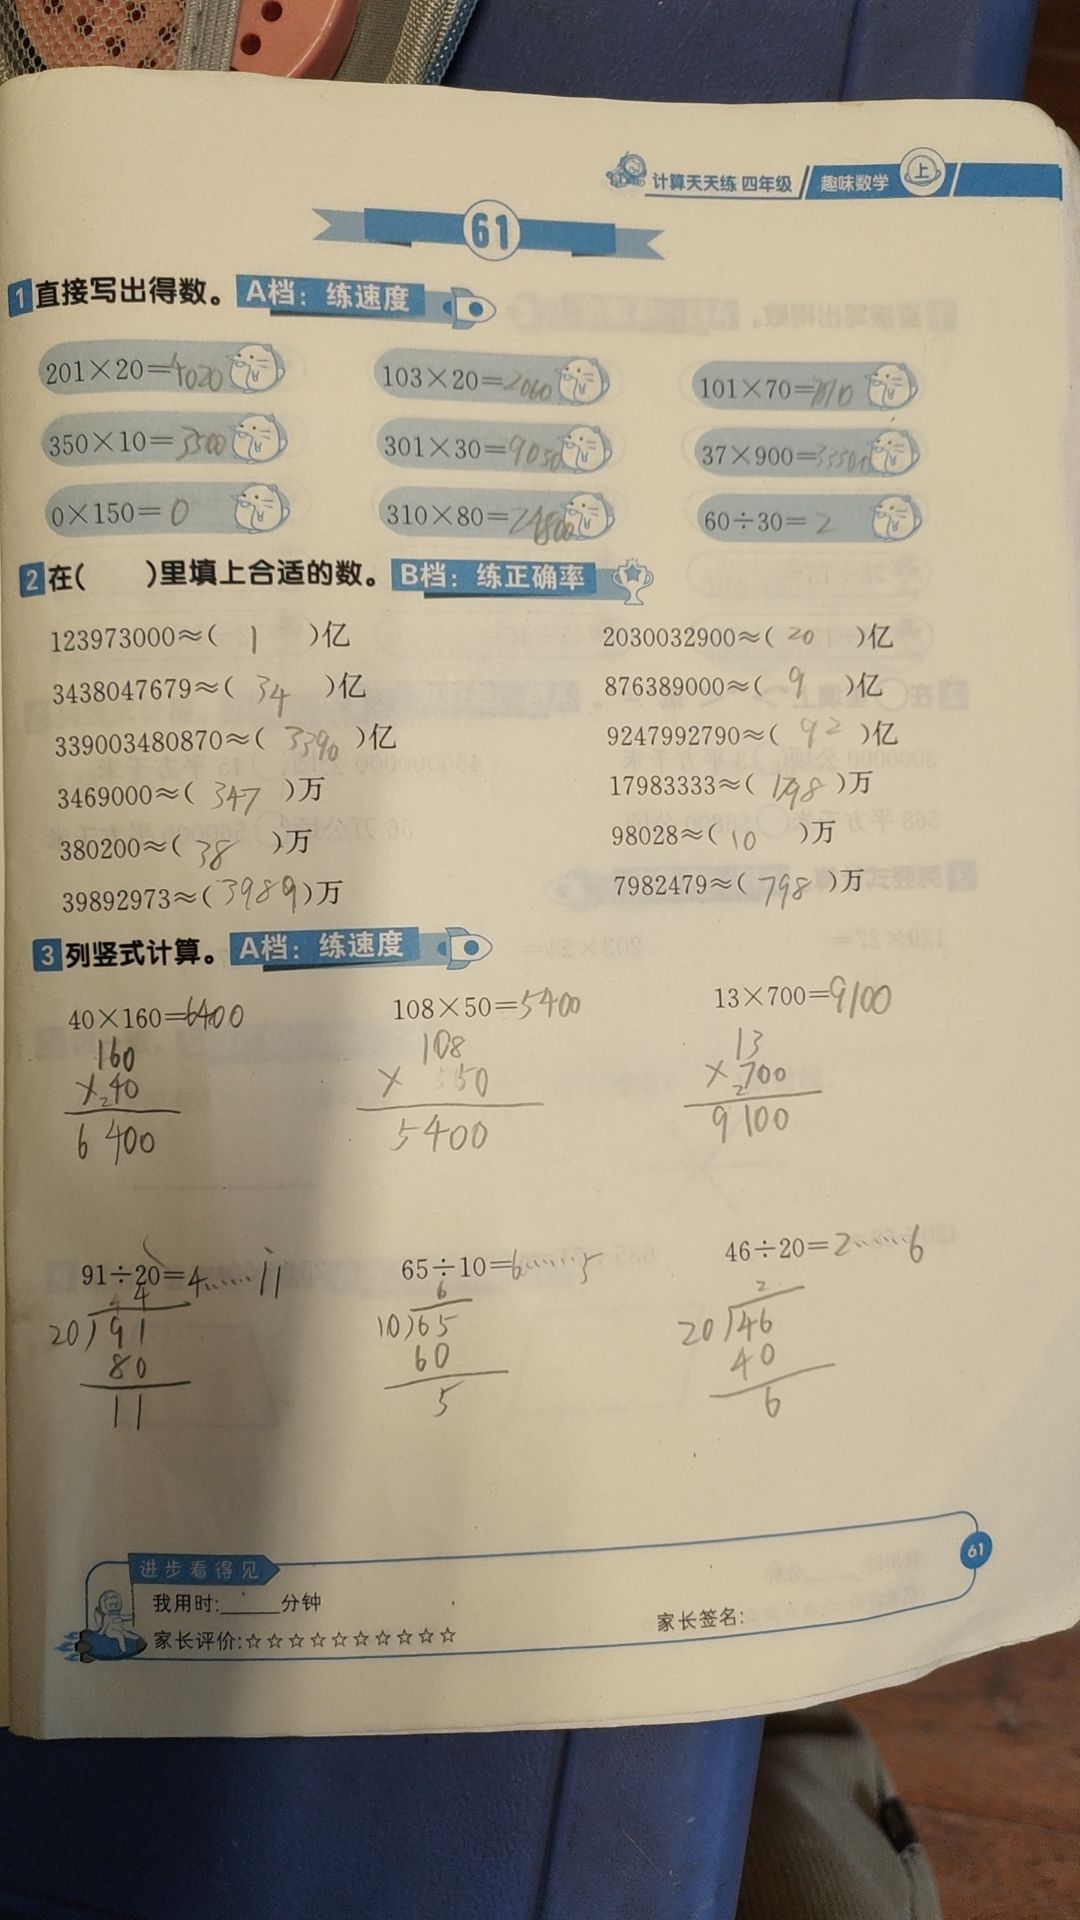 计算天天练 四年级 趣味数学 上
61
1 直接写出得数。 A档：练速度
201×20=4020 103×20=2060 101×70=7070
350×10=3500 301×30=9030 37×900=
0×150=0 310×80=24800 60÷30=2
2 在( )里填上合适的数。 B档：练正确率
123973000≈( 1 )亿 2030032900≈( 20 )亿
3438047679≈( 34 )亿 876389000≈( 9 )亿
339003480870≈( 3390 )亿 9247992790≈( 92 )亿
3469000≈( 347 )万 17983333≈( 1798 )万
380200≈( 38 )万 98028≈( 10 )万
39892973≈( 3989 )万 7982479≈( 798 )万
3 列竖式计算。 A档：练速度
40×160=6400 108×50=5400 13×700=9100
160 108 13
×240 × 50 ×2700
6400 5400 9100
91÷20=4……11 65÷10=6……5 46÷20=2……6
4 6 2
20)91 10)65 20)46
80 60 40
11 5 6
进步看得见
61
我用时:______分钟
家长评价:☆☆☆☆☆☆☆☆☆☆ 家长签名: